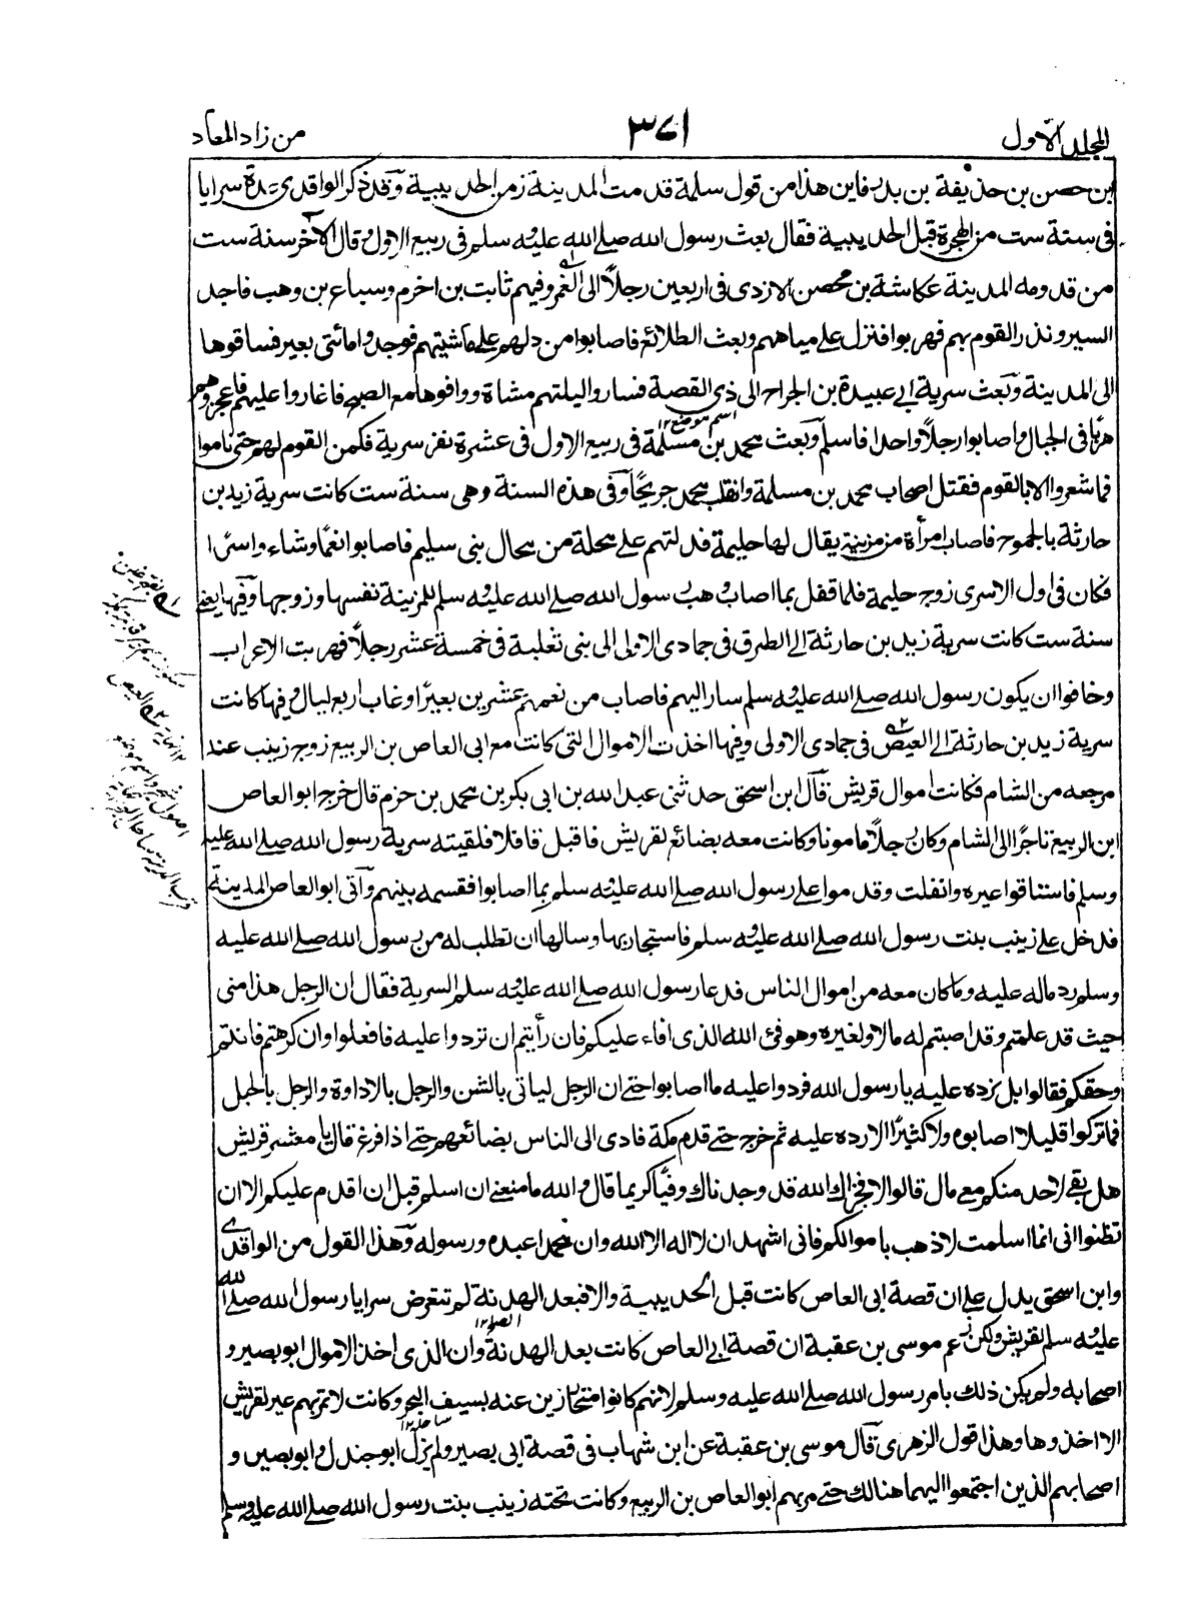 المجلد الاول
٣٧١
من زاد المعاد
ابن حصن بن حذيفة بن بدر فاين هذا من قول سلمة قدمت المدينة زمن الحديبية وقد ذكر الواقدى عدة سرايا
فى سنة ست من الهجرة قبل الحديبية فقال بعث رسول الله صلى الله عليه وسلم فى ربيع الاول وقال الآخر سنة ست
من قدومه المدينة عكاشة بن محصن الازدى فى اربعين رجلاً الى الغمر وفيهم ثابت بن اخرم وسباع بن وهب فاجد
السير ونذر القوم بهم فهربوا فنزل على مياههم وبعث الطلائع فاصابوا من دلهم على ماشيتهم فوجدوا مائتى بعير فساقوها
الى المدينة وبعث سرية ابى عبيدة بن الجراح الى ذى القصة فساروا ليلتهم مشاة ووافوها مع الصبح فاغاروا عليهم فاعجزوهم
هربًا فى الجبال واصابوا رجلاً واحدا فاسلم وبعث محمد بن مسلمة فى ربيع الاول فى عشرة نفر سرية فكمن القوم لهم حتى ناموا
اسم موضع ١٢
فما شعروا الا بالقوم فقتل اصحاب محمد بن مسلمة وانقلب محمد جريحًا وفى هذه السنة وهى سنة ست كانت سرية زيد بن
حارثة بالجموح فاصاب امرأة من مزينة يقال لها حليمة فدلتهم على محلة من محال بنى سليم فاصابوا نعمًا وشاء واسرًا
فكان فى اول الاسرى زوج حليمة فلما قفل بما اصاب وهب رسول الله صلى الله عليه وسلم للمزينة نفسها وزوجها وفيها يعنى
سنة ست كانت سرية زيد بن حارثة الى الطرق فى جمادى الاولى الى بنى ثعلبة فى خمسة عشر رجلاً فهربت الاعراب
وخافوا ان يكون رسول الله صلى الله عليه وسلم سار اليهم فاصاب من نعمهم عشرين بعيرًا وغاب اربع ليال وفيها كانت
سرية زيد بن حارثة الى العيص فى جمادى الاولى وفيها اخذت الاموال التى كانت مع ابى العاص بن الربيع زوج زينب عند
مرجعه من الشام فكانت اموال قريش قال ابن اسحق حدثنى عبد الله بن ابى بكر بن محمد بن حزم قال خرج ابو العاص
ابن الربيع تاجرًا الى الشام وكان رجلاً مامونا وكانت معه بضائع لقريش فاقبل قافلا فلقيته سرية رسول الله صلى الله عليه
وسلم فاستاقوا عيره وانفلت وقدموا على رسول الله صلى الله عليه وسلم بما اصابوا فقسمه بينهم واتى ابو العاص المدينة
فدخل على زينب بنت رسول الله صلى الله عليه وسلم فاستجار بها وسالها ان تطلب له من رسول الله صلى الله عليه
وسلم رد ماله عليه وما كان معه من اموال الناس فدعا رسول الله صلى الله عليه وسلم السرية فقال ان الرجل هذا منى
حيث قد علمتم وقد اصبتم له مالا ولغيره وهو فئ الله الذى افاء عليكم فان رأيتم ان تردوا عليه فافعلوا وان كرهتم فانتم
وحقكم فقالوا بل نرده عليه يا رسول الله فردوا عليه ما اصابوا حتى ان الرجل لياتى بالشن والرجل بالاداوة والرجل بالحبل
فما تركوا قليلا اصابوه ولا كثيرًا الا رده عليه ثم خرج حتى قدم مكة فادى الى الناس بضائعهم حتى اذا فرغ قال يا معشر قريش
هل بقى لاحد منكم معى مال قالوا لا فجزاك الله قد وجدناك وفيًا كريما قال والله ما منعنى ان اسلم قبل ان اقدم عليكم الا ان
تظنوا انى انما اسلمت لاذهب باموالكم فانى اشهد ان لا اله الا الله وان محمدا عبده ورسوله وهذا القول من الواقدى
وابن اسحق يدل على ان قصة ابى العاص كانت قبل الحديبية والا فبعد الهدنة لم تتعرض سرايا رسول الله صلى الله
عليه وسلم لقريش ولكن زعم موسى بن عقبة ان قصة ابى العاص كانت بعد الهدنة وان الذى اخذ الاموال ابو بصير و
الصلح ١٢
اصحابه ولم يكن ذلك بامر رسول الله صلى الله عليه وسلم لانهم كانوا منحازين عنه بسيف البحر وكانت لا تمر بهم عير لقريش
ساحل ١٢
الا اخذوها وهذا قول الزهرى قال موسى بن عقبة عن ابن شهاب فى قصة ابى بصير ولم يزل ابو جندل وابو بصير و
اصحابهم الذين اجتمعوا اليهما هنالك حتى مر بهم ابو العاص بن الربيع وكانت تحته زينب بنت رسول الله صلى الله عليه وسلم